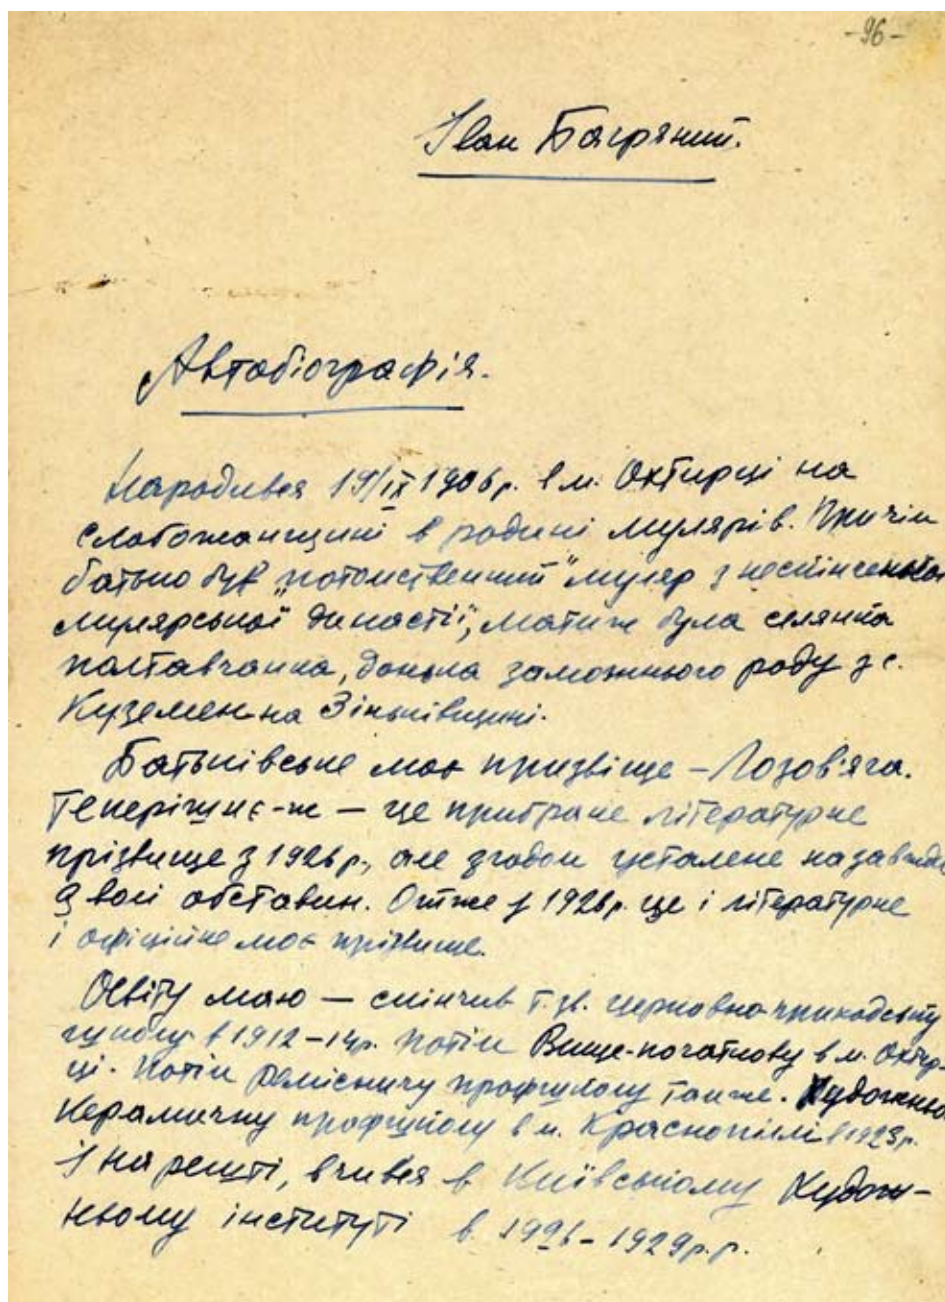 -96-
Іван Багряний.
Автобіографія.
Народився 19/ІХ 1906 р. в м. Охтирці на
Слобожанщині в родині мулярів. Причім
батько був „потомственний" муляр з нескінченної
мулярської династії", мати ж була селянка
полтавчанка, донька заможнього роду з с.
Куземен на Зіньківщині.
Батьківське моє призвіще – Лозов'яга.
Теперішнє-ж — це прибране літературне
прізвище з 1926 р., але згодом усталене назавжди
з волі обставин. Отже з 1926 р. це і літературне
і офіційне моє прізвище.
Освіту маю — скінчив т. зв. церковно-приходську
школу в 1912–14 р. Потім Вище-початкову в м. Охтир-
ці. Потім ремісничу профшколу там же. Художньо
Керамичну профшколу в м. Краснопіллі в 1923 р.
І нарешті, вчився в Київському Худож-
ньому інституті в 1926–1929 р.р.